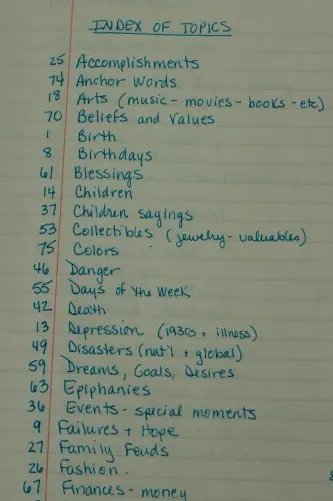 INDEX OF TOPICS
25 Accomplishments
74 Anchor Words
18 Arts (music - movies - books - etc)
70 Beliefs and Values
1 Birth
8 Birthdays
61 Blessings
14 Children
37 Children sayings
53 Collectibles (jewelry - valuables)
75 Colors
46 Danger
55 Days of the Week
42 Death
13 Depression (1930s + illness)
49 Disasters (nat'l + global)
59 Dreams, Goals, Desires
63 Epiphanies
36 Events - special moments
9 Failures + Hope
27 Family Feuds
26 Fashion
67 Finances - money